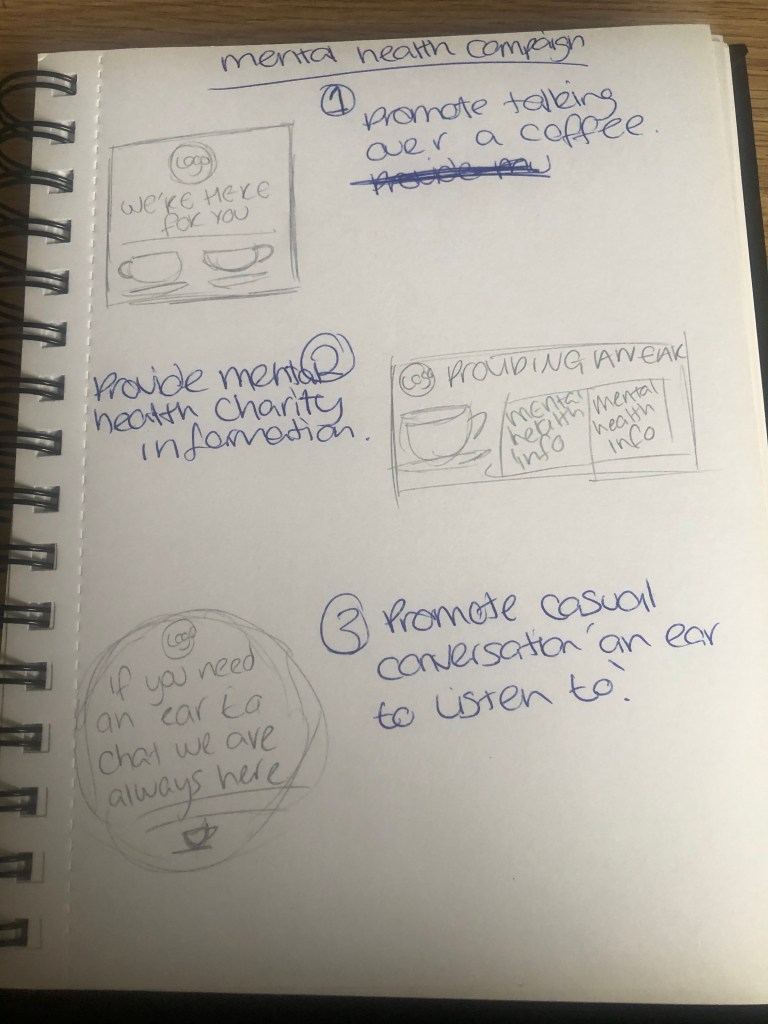 mental health campaign
① Promote talking
over a coffee.
Logo
WE'RE HERE
FOR YOU
②
Provide mental
health charity
information.
Logo PROVIDING AN EAR
mental
health
info
mental
health
info
③ Promote casual
conversation 'an ear
to listen to'.
Logo
if you need
an ear to
chat we are
always here